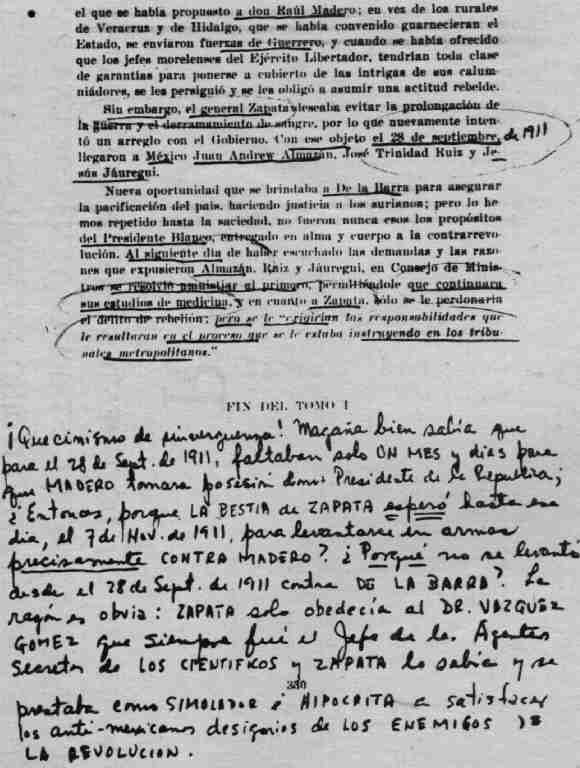 el que se había propuesto a don Raúl Madero; en vez de los rurales
de Veracruz y de Hidalgo, que se había convenido guarnecieran el
Estado, se enviaron fuerzas de Guerrero, y cuando se había ofrecido
que los jefes morelenses del Ejército Libertador, tendrían toda clase
de garantías para ponerse a cubierto de las intrigas de sus calum-
niádores, se les persiguió y se les obligó a asumir una actitud rebelde.
Sin embargo, el general Zapata deseaba evitar la prolongación de
la guerra y el derramamiento de sangre, por lo que nuevamente inten-
tó un arreglo con el Gobierno. Con ese objeto el 28 de septiembre, de 1911
llegaron a México Juan Andrew Almazán, José Trinidad Ruiz y Je-
sús Jáuregui.
Nueva oportunidad que se brindaba a De la Barra para asegurar
la pacificación del país, haciendo justicia a los surianos; pero lo he-
mos repetido hasta la saciedad, no fueron nunca esos los propósitos
del Presidente Blanco, entregado en alma y cuerpo a la contrarrevo-
lución. Al siguiente día de haber escuchado las demandas y las razo-
nes que expusieron Almazán, Ruiz y Jáuregui, en Consejo de Minis-
tros se resolvió amnistiar al primero, permitiéndole que continuara
sus estudios de medicina, y en cuanto a Zapata, sólo se le perdonaría
el delito de rebelión; pero se le "exigirían las responsabilidades que
le resultaran en el proceso que se le estaba instruyendo en los tribu-
nales metropolitanos."
FIN DEL TOMO I
¡Que cinismo de sinverguenza! Magaña bien sabía que
para el 28 de Sept. de 1911, faltaban solo UN MES y dias para
que MADERO tomara posesión como Presidente de la Republica;
¿Entonces, porque LA BESTIA de ZAPATA esperó hasta ese
dia, el 7 de Nov. de 1911, para levantarse en armas
precisamente CONTRA MADERO? ¿Porqué no se levantó
desde el 28 de Sept. de 1911 contra DE LA BARRA? La
razón es obvia: ZAPATA solo obedecía al DR. VAZQUEZ
GOMEZ que siempre fué el Jefe de los Agentes
Secretos de LOS CIENTIFICOS y ZAPATA lo sabia y se
330
prestaba como SIMOLADOR é HIPOCRITA a satisfacer
los anti-mexicanos designios de LOS ENEMIGOS DE
LA REVOLUCION.